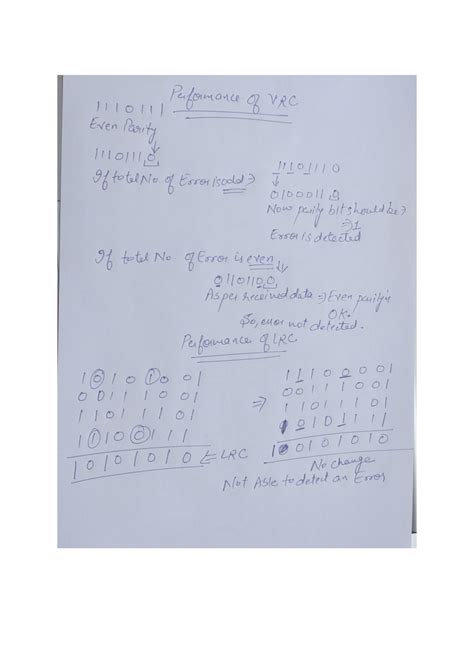 Performance of VRC
1110111
Even Parity
1110111,0
If total No. of Error is odd ⇒
11101110
0100011,0
Now parity bit should be ⇒
⇒ 1
Error is detected
If total No of Error is even
0110110,0
As per received data ⇒ Even parity is
OK.
So, error not detected.
Performance of LRC
1 0 1 0 1 0 0 1
0 0 1 1 1 0 0 1
1 1 0 1 1 1 0 1
1 1 0 0 1 1 1
1 0 1 0 1 0 1 0 ⇐ LRC
⇒
1 1 1 0 0 0 0 1
0 0 1 1 1 0 0 1
1 1 0 1 1 1 0 1
1 0 1 0 1 1 1 1
1 0 1 0 1 0 1 0
No change
Not Able to detect an Error